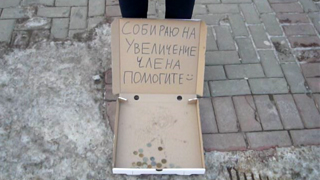 СОБИРАЮ НА
УВЕЛИЧЕНИЕ
ЧЛЕНА
ПОМОГИТЕ